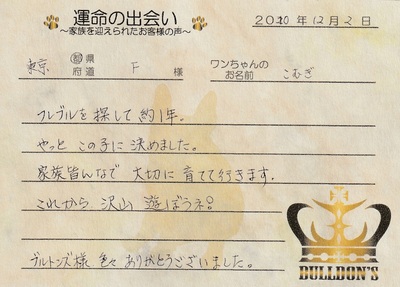 運命の出会い
～家族を迎えられたお客様の声～
2010年12月2日
東京 都道府県 F 様
ワンちゃんのお名前 こむぎ
フレブルを探して約1年。
やっとこの子に決めました。
家族皆んなで大切に育てて行きます。
これから沢山遊ぼうネ!
ブルトンズ様 色々ありがとうございました。
BULLDON'S